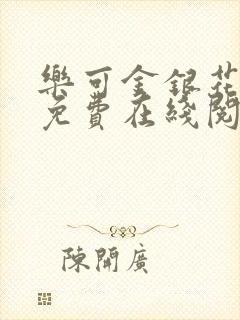 樂可金銀花
免費在綫閱
陳開廣